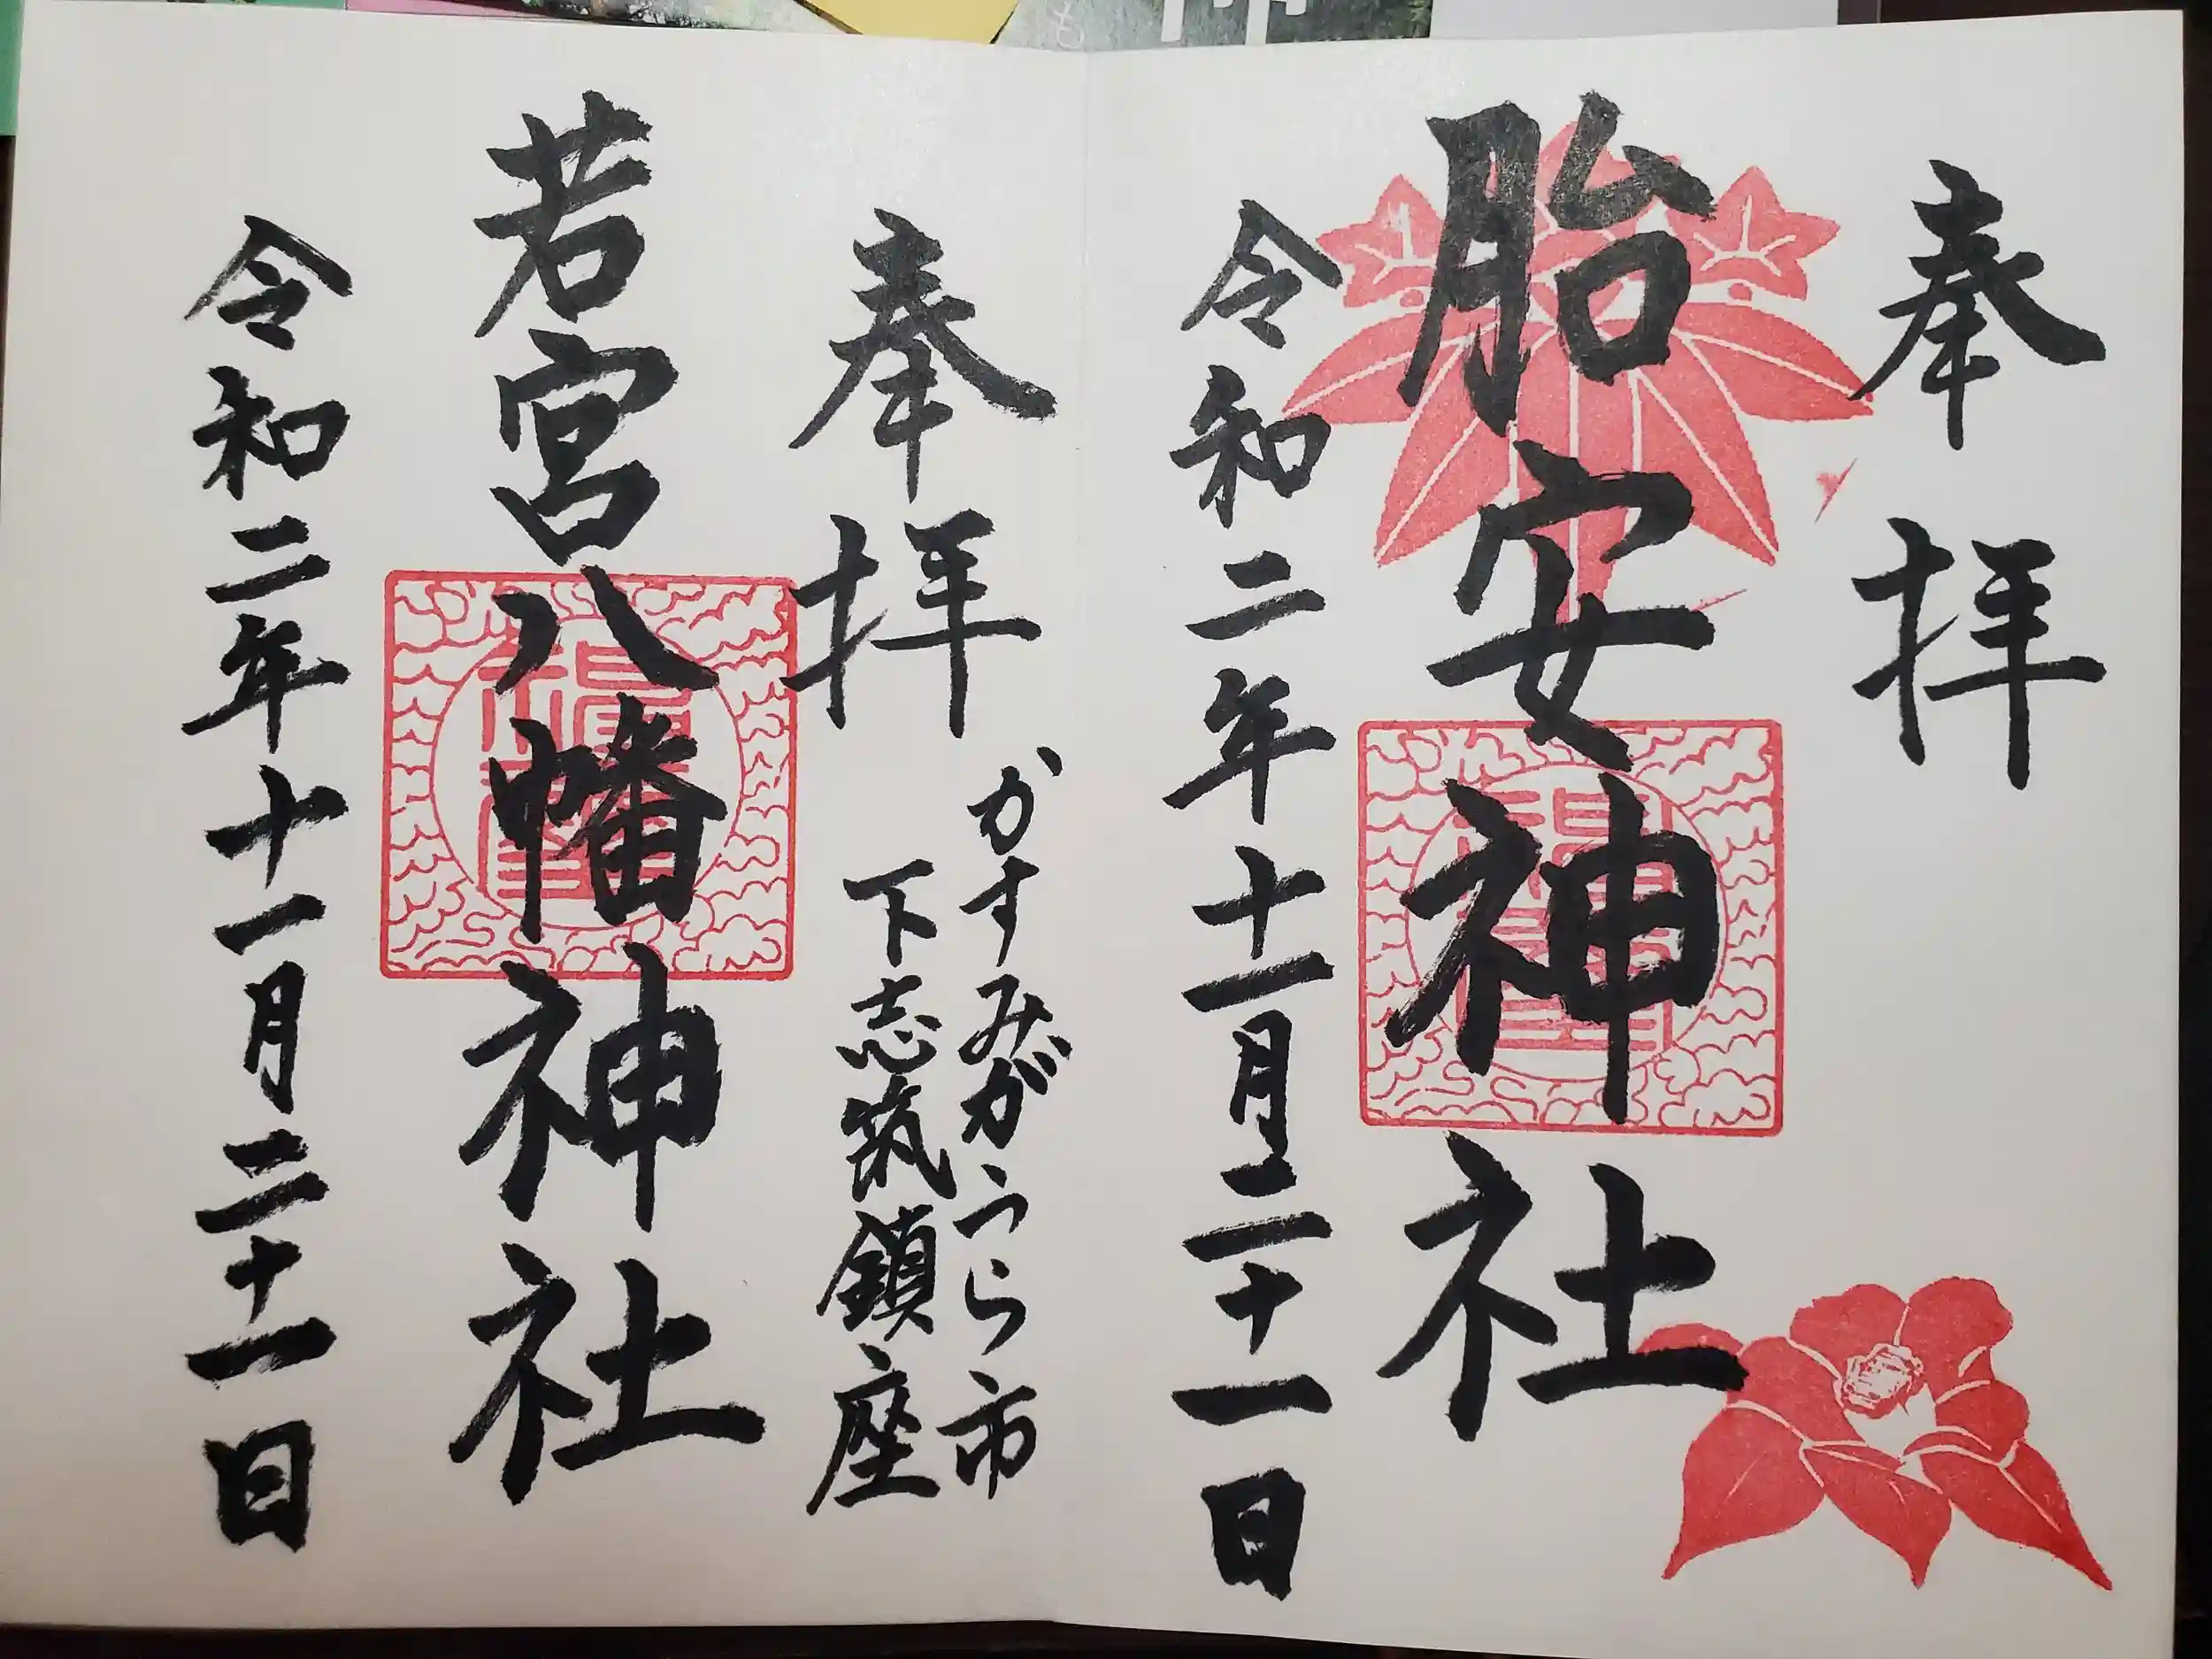 奉拝
胎安神社
令和二年十一月二十一日
奉拝
かすみがうら市
下志筑鎮座
若宮八幡神社
令和二年十一月二十一日
も